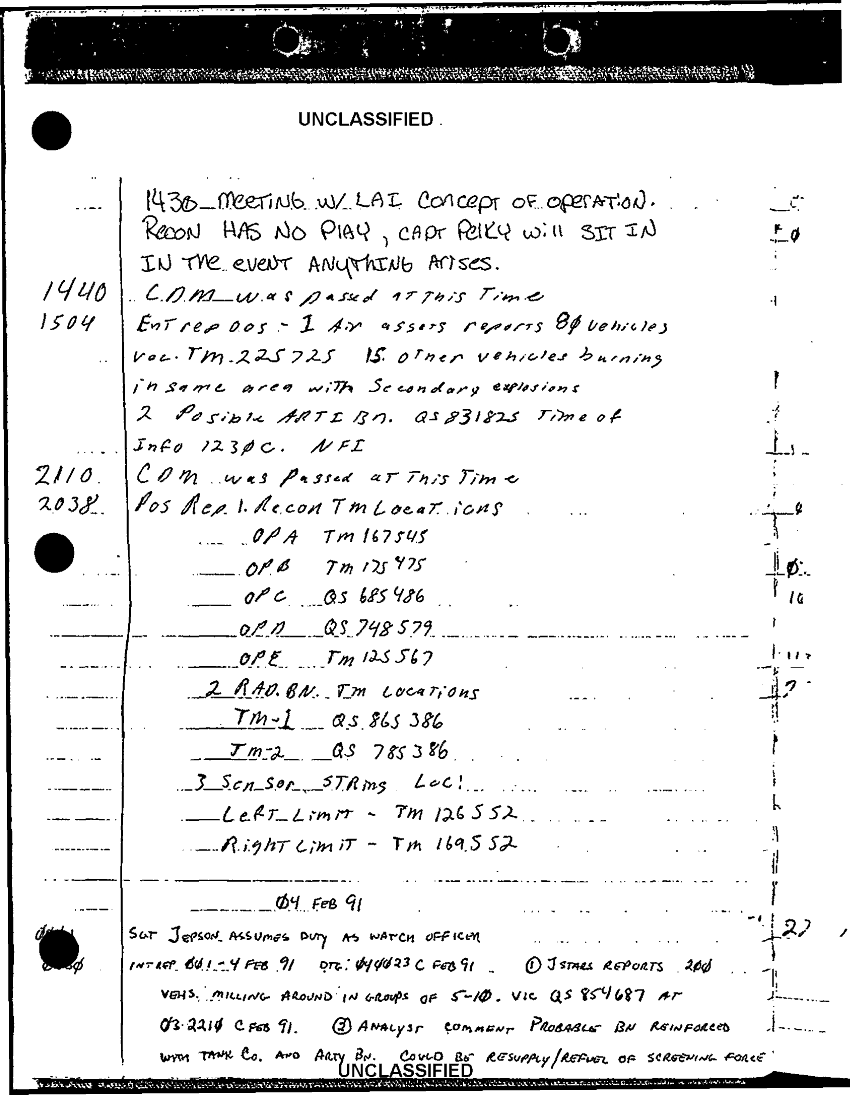 UNCLASSIFIED
1430 - MEETING W/ LAI CONCEPT OF OPERATION.
RECON HAS NO PLAY, CAPT PELKY WILL SIT IN
IN THE EVENT ANYTHING ARISES.
1440 C.O.M was passed at This Time
1504 Entrep 005 - 1 Air assets reports 8Ø vehicles
voc. TM 225725 15 other vehicles burning
in same area with Secondary explosions
2 Posible ARTI Bn. QS 831825 Time of
Info 123ØC. NFI
2110 COM was passed at This Time
2038 Pos Rep. 1. Recon Tm Locations
OP A Tm 167545
OP B Tm 125475
OP C QS 685486
OP D QS 748579
OP E Tm 125567
2 RAD. BN. Tm Locations
TM-1 QS 865386
Tm-2 QS 785386
3 Sensor STRings Loc:
Left Limit - Tm 126552
Right Limit - Tm 169552
Ø4 FEB 91
SGT JEPSON ASSUMES DUTY AS WATCH OFFICER
INTREP ØØ1-4 FEB 91 DTG: Ø4ØØ23 C FEB 91 ① JSTARS REPORTS 2ØØ
VEHS. MILLING AROUND IN GROUPS OF 5-1Ø. VIC QS 854687 AT
Ø3-221Ø C FEB 91. ② ANALYST COMMENT PROBABLE BN REINFORCED
WITH TANK CO. AND ARTY BN. COULD BE RESUPPLY/REFUEL OF SCREENING FORCE
UNCLASSIFIED